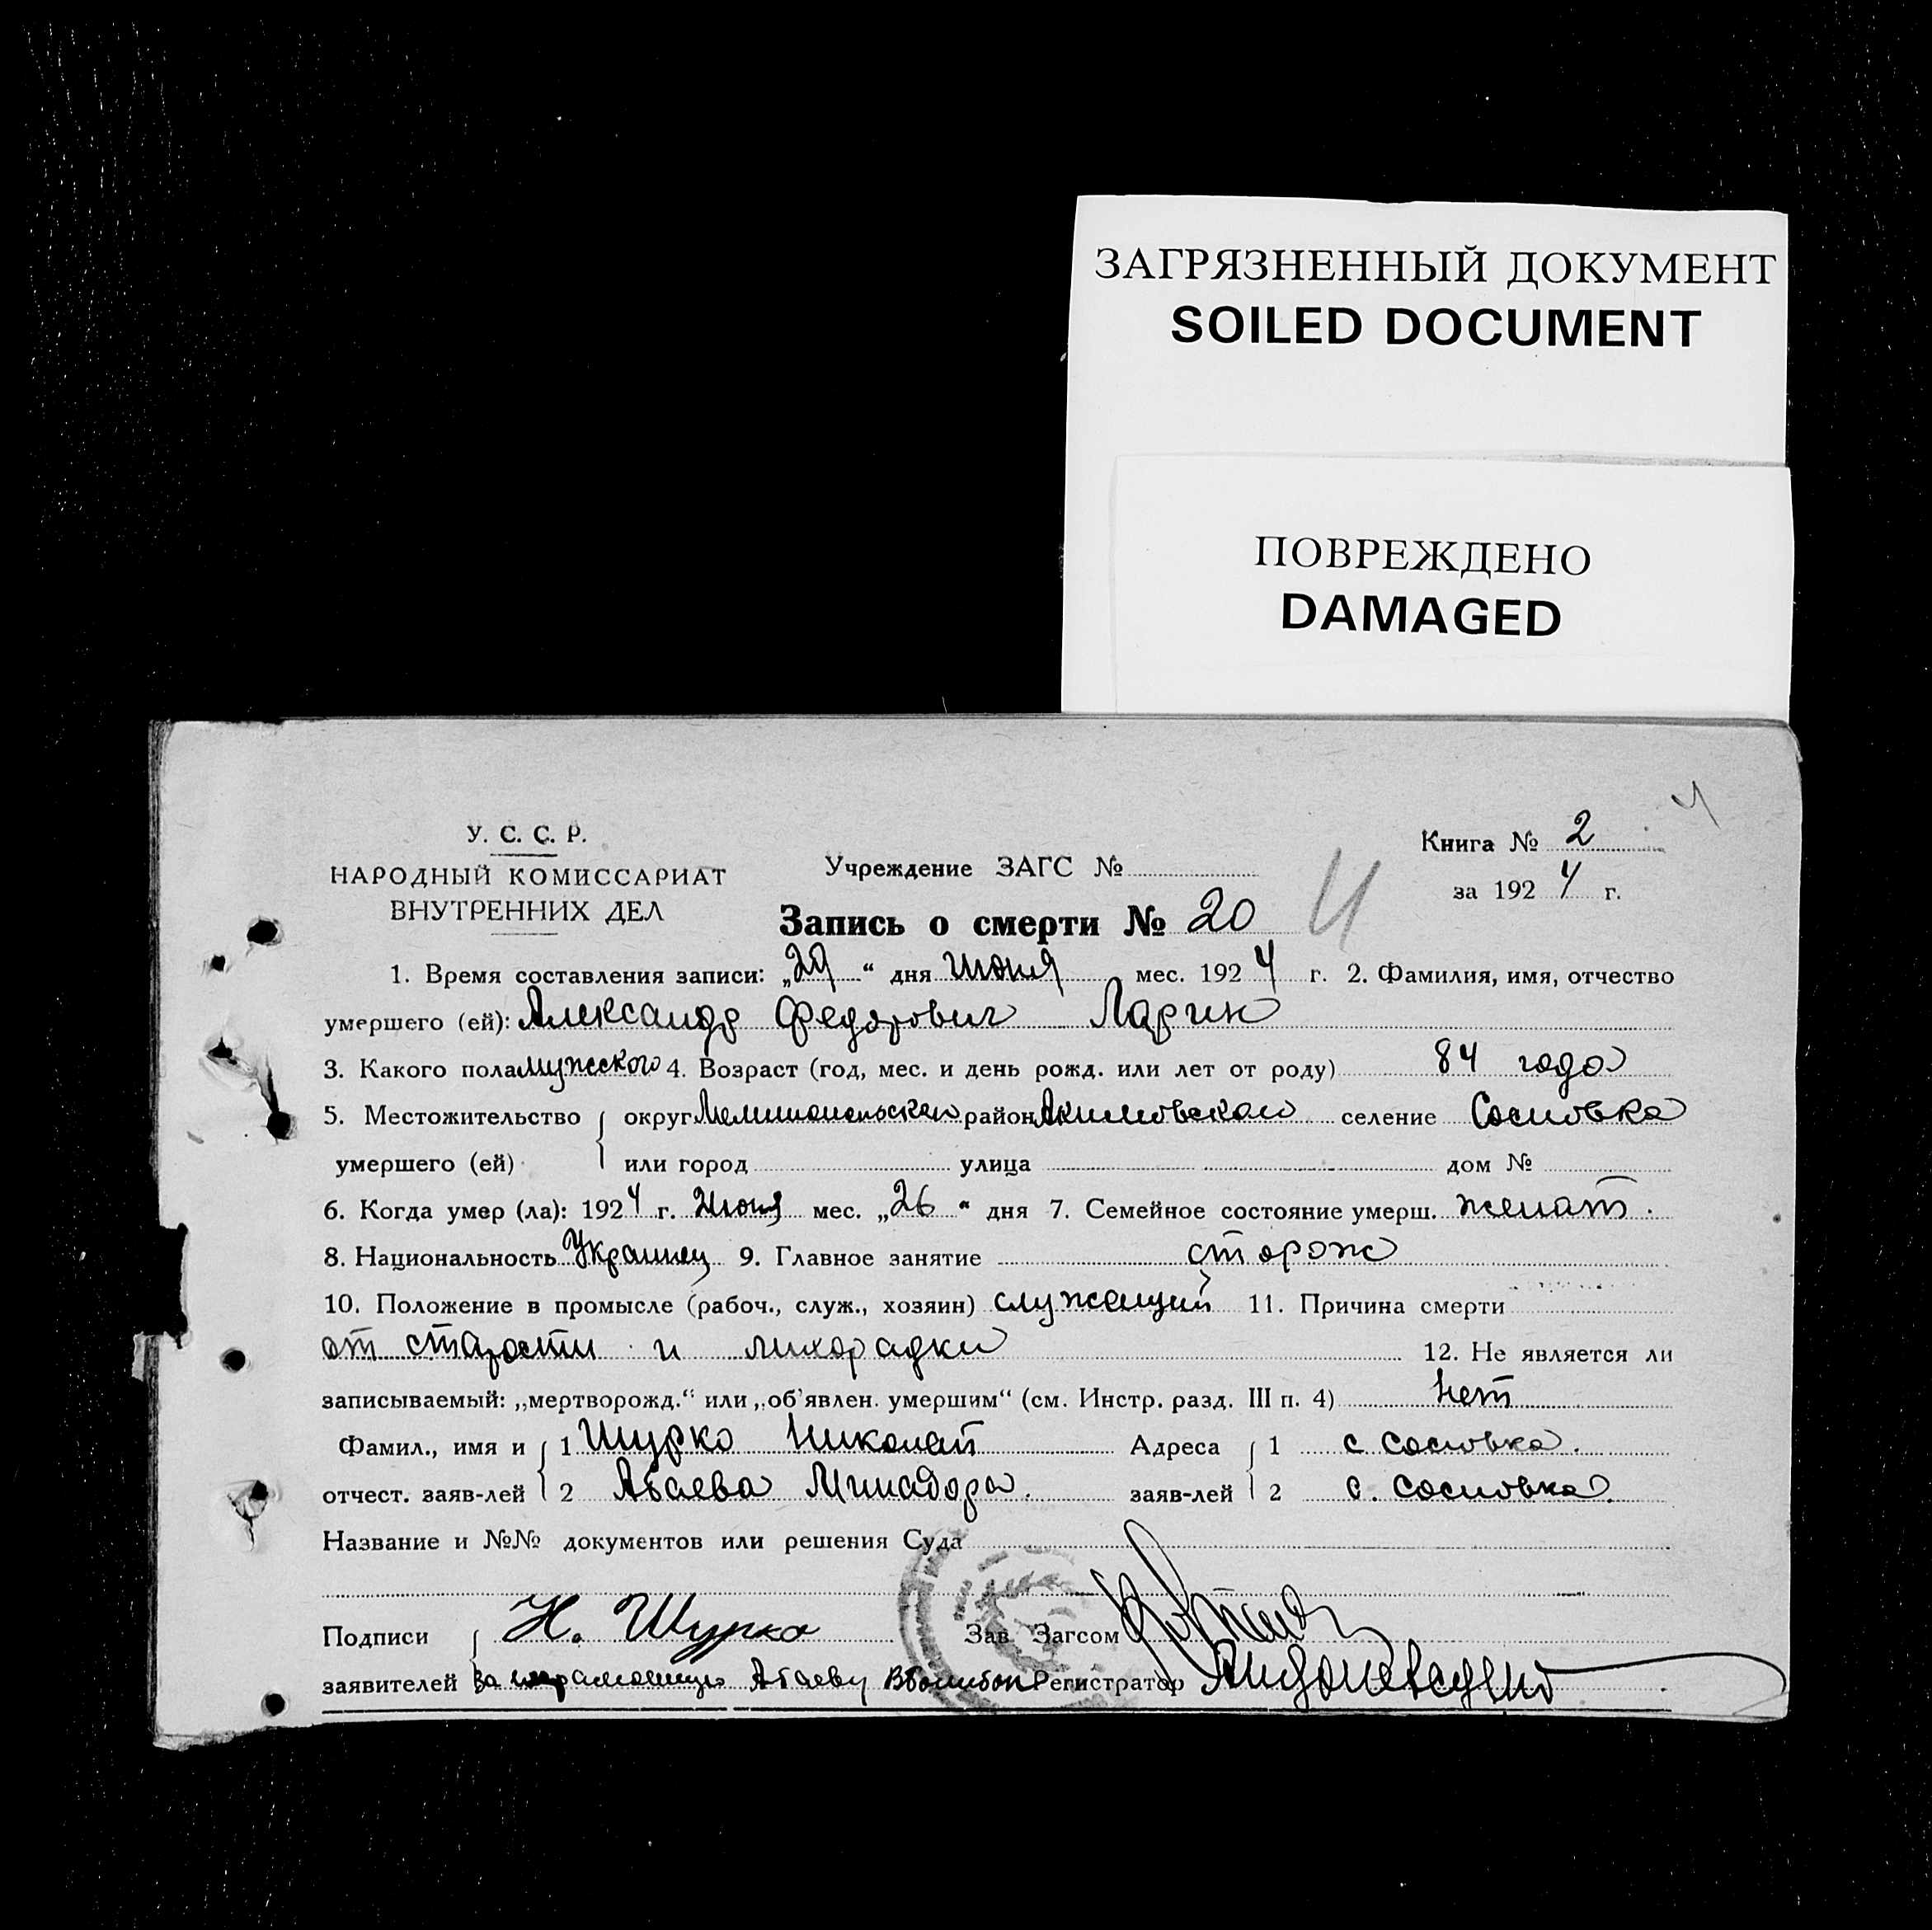 ЗАГРЯЗНЕННЫЙ ДОКУМЕНТ
SOILED DOCUMENT
ПОВРЕЖДЕНО
DAMAGED
У. С. С. Р.
НАРОДНЫЙ КОМИССАРИАТ
ВНУТРЕННИХ ДЕЛ
Учреждение ЗАГС №
Книга № 2
за 1924 г.
Запись о смерти № 20
1. Время составления записи: „29“ дня июня мес. 1924 г. 2. Фамилия, имя, отчество
умершего (ей): Александр Федорович Ларин
3. Какого пола мужского 4. Возраст (год, мес. и день рожд. или лет от роду) 84 года
5. Местожительство округ Мелитопольский район Акимовский селение Сосновка
умершего (ей) или город улица дом №
6. Когда умер (ла): 1924 г. Июня мес. „26“ дня 7. Семейное состояние умерш. женат.
8. Национальность Украинец 9. Главное занятие сторож
10. Положение в промысле (рабоч., служ., хозяин) служащий 11. Причина смерти
от старости и лихорадки 12. Не является ли
записываемый: „мертворожд.“ или „об'явлен. умершим“ (см. Инстр. разд. III п. 4) Нет
Фамил., имя и 1 Шурко Николай Адреса 1 с Сосновка.
отчест. заяв-лей 2 Абаева Минадора. заяв-лей 2 с. Сосновка.
Название и №№ документов или решения Суда
Подписи Н. Шурко Зав Загсом
заявителей за Абаеву Регистратор